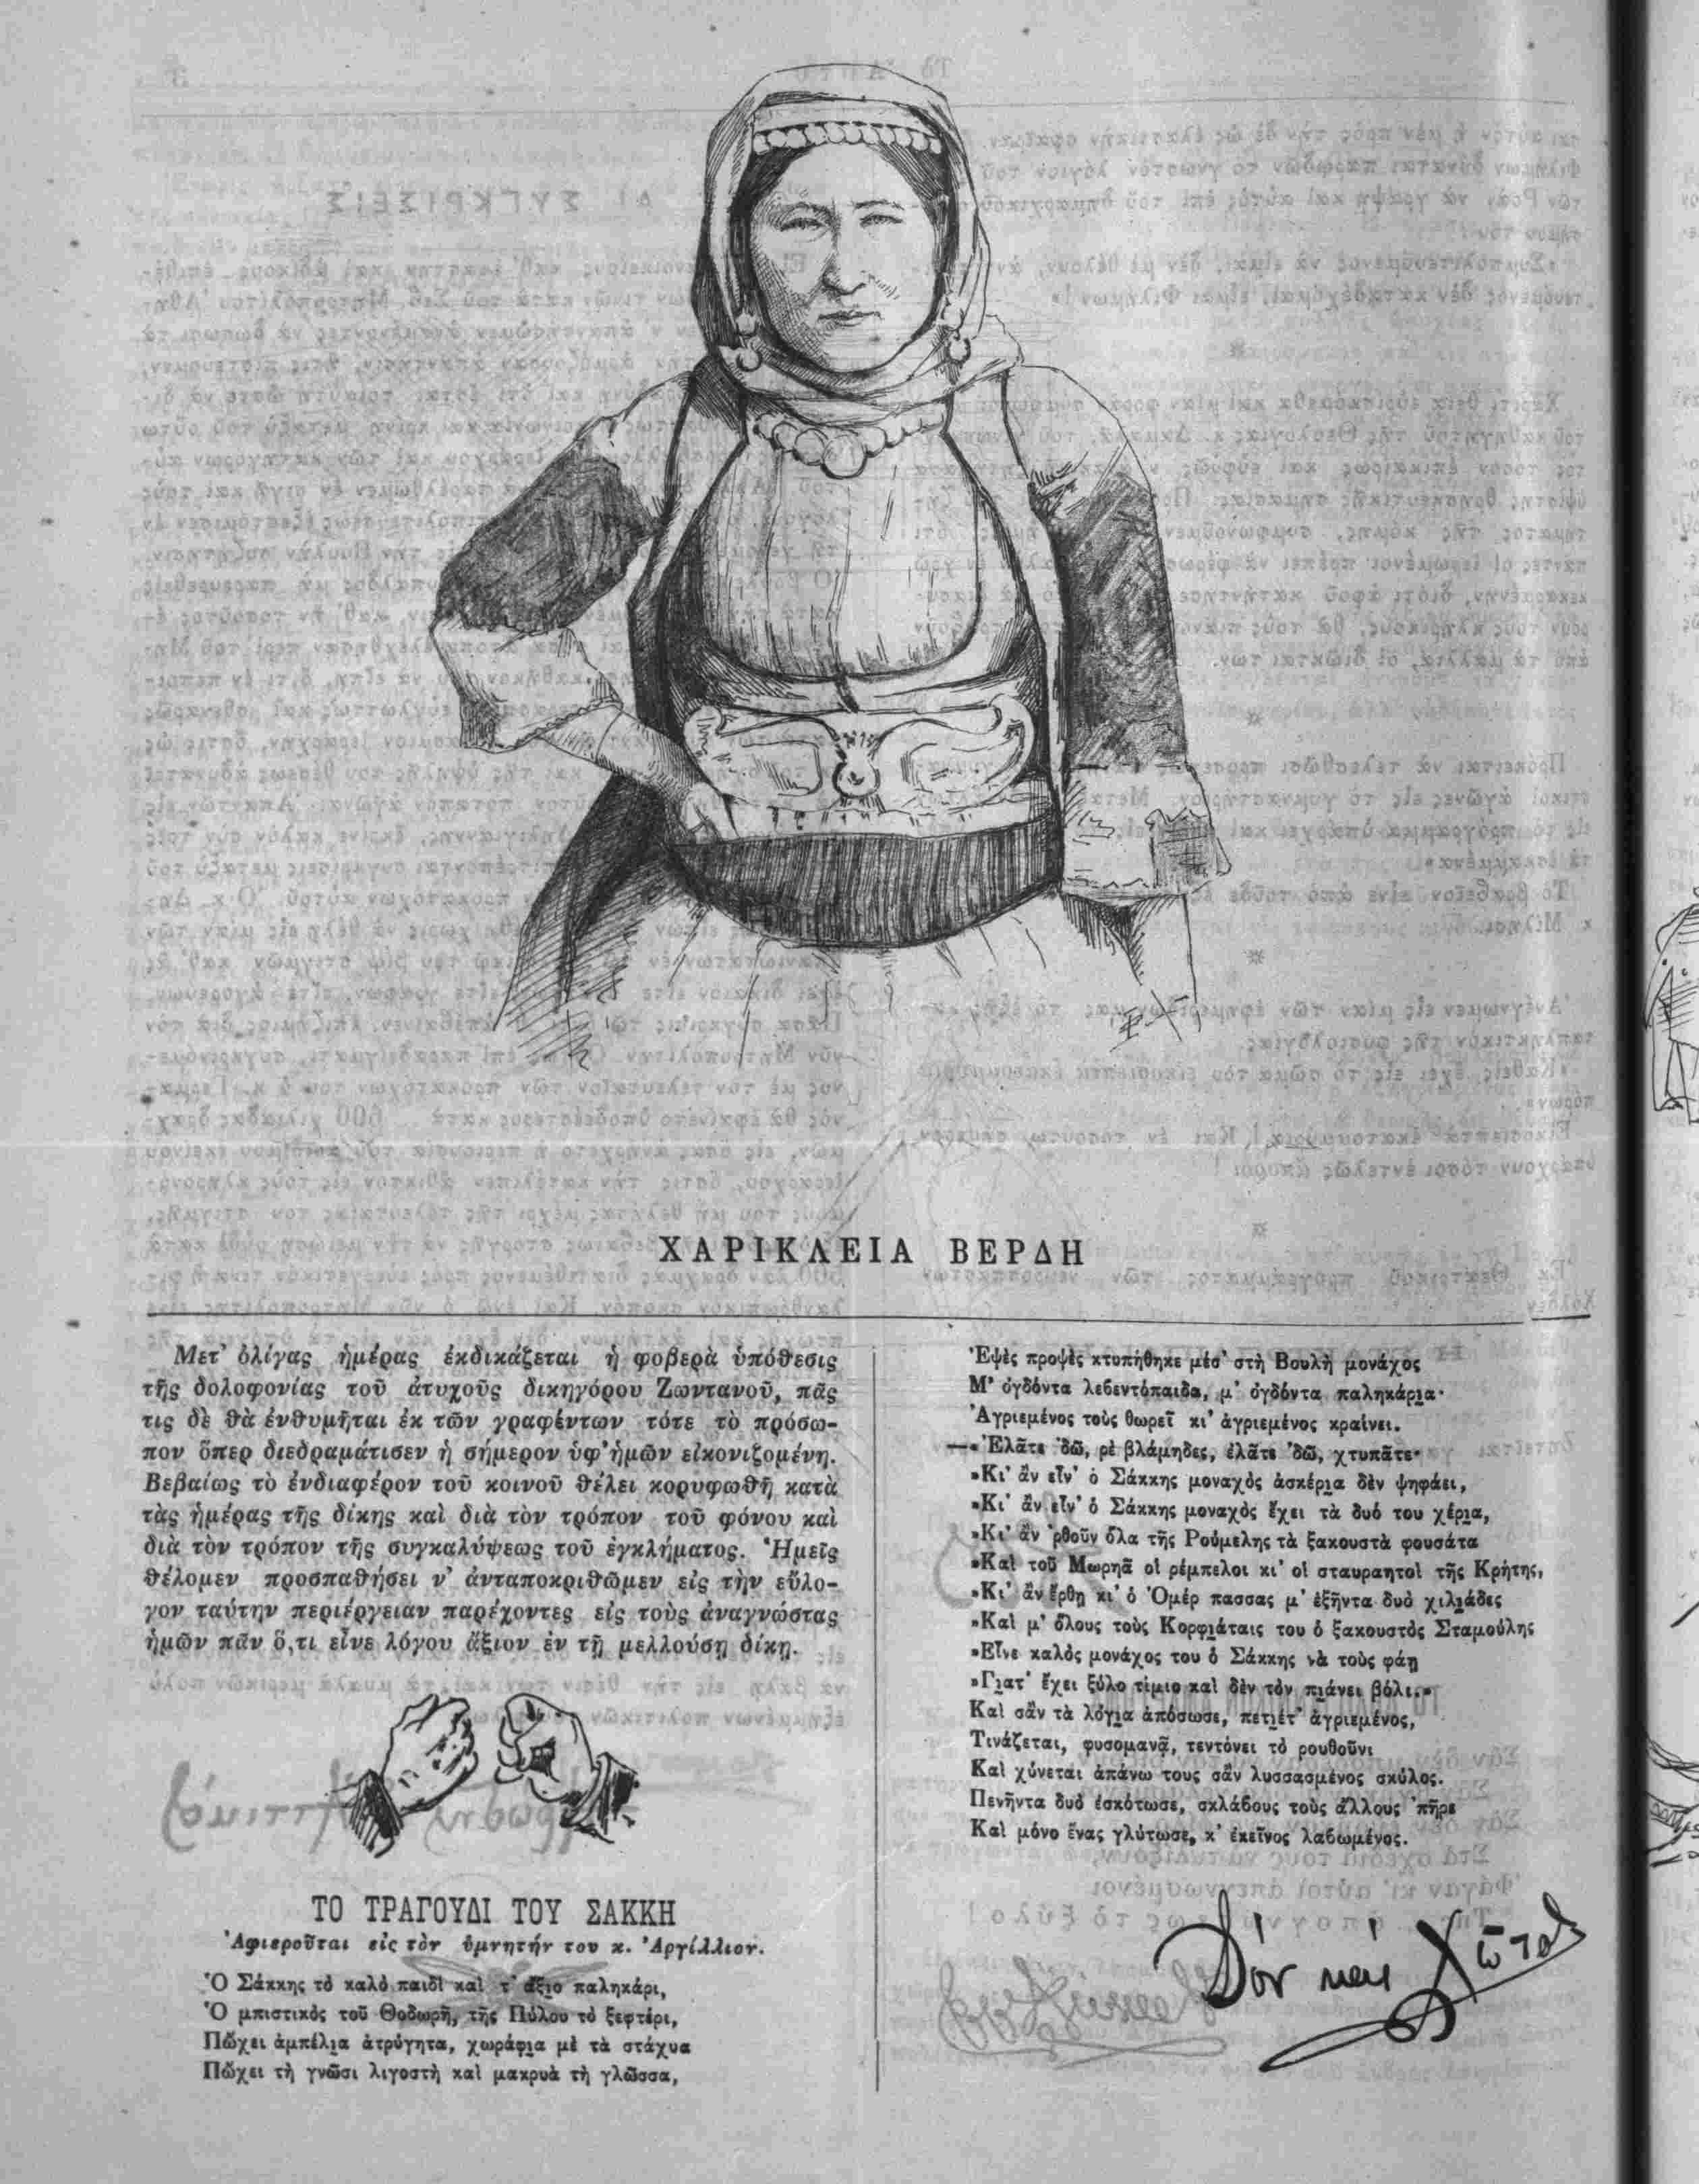 ΧΑΡΙΚΛΕΙΑ ΒΕΡΔΗ
Μετ' ὀλίγας ἡμέρας ἐκδικάζεται ἡ φοβερὰ ὑπόθεσις
τῆς δολοφονίας τοῦ ἀτυχοῦς δικηγόρου Ζωντανοῦ, πᾶς
τις δὲ θὰ ἐνθυμῆται ἐκ τῶν γραφέντων τότε τὸ πρόσω-
πον ὅπερ διεδραμάτισεν ἡ σήμερον ὑφ' ἡμῶν εἰκονιζομένη.
Βεβαίως τὸ ἐνδιαφέρον τοῦ κοινοῦ θέλει κορυφωθῆ κατὰ
τὰς ἡμέρας τῆς δίκης καὶ διὰ τὸν τρόπον τοῦ φόνου καὶ
διὰ τὸν τρόπον τῆς συγκαλύψεως τοῦ ἐγκλήματος. Ἡμεῖς
θέλομεν προσπαθήσει ν' ἀνταποκριθῶμεν εἰς τὴν εὔλο-
γον ταύτην περιέργειαν παρέχοντες εἰς τοὺς ἀναγνώστας
ἡμῶν πᾶν ὅ,τι εἶνε λόγου ἄξιον ἐν τῇ μελλούσῃ δίκῃ.
ΤΟ ΤΡΑΓΟΥΔΙ ΤΟΥ ΣΑΚΚΗ
Ἀφιεροῦται εἰς τὸν ὑμνητήν του κ. Ἀργίλλιον.
Ὁ Σάκκης τὸ καλὸ παιδὶ καὶ τ' ἄξιο παληκάρι,
Ὁ μπιστικὸς τοῦ Θοδωρῆ, τῆς Πύλου τὸ ξεφτέρι,
Πὤχει ἀμπέλια ἀτρύγητα, χωράφια μὲ τὰ στάχυα
Πὤχει τὴ γνῶσι λιγοστὴ καὶ μακρυὰ τὴ γλῶσσα,
Ἐψὲς προψὲς κτυπήθηκε μέσ' στὴ Βουλὴ μονάχος
Μ' ὀγδόντα λεβεντόπαιδα, μ' ὀγδόντα παληκάρια·
Ἀγριεμένος τοὺς θωρεῖ κι' ἀγριεμένος κραίνει.
—« Ἐλᾶτε 'δῶ, ρὲ βλάμηδες, ἐλᾶτε 'δῶ, χτυπᾶτε·
»Κι' ἂν εἶν' ὁ Σάκκης μοναχὸς ἀσκέρια δὲν ψηφάει,
»Κι' ἂν εἶν' ὁ Σάκκης μοναχὸς ἔχει τὰ δυό του χέρια,
»Κι' ἂν 'ρθοῦν ὅλα τῆς Ρούμελης τὰ ξακουστὰ φουσάτα
»Καὶ τοῦ Μωρηᾶ οἱ ρέμπελοι κι' οἱ σταυραητοὶ τῆς Κρήτης,
»Κι' ἂν ἔρθῃ κι' ὁ Ὀμέρ πασσας μ' ἑξῆντα δυὸ χιλιάδες
»Καὶ μ' ὅλους τοὺς Κορφιάταις του ὁ ξακουστὸς Σταμούλης
»Εἶνε καλὸς μονάχος του ὁ Σάκκης νὰ τοὺς φάῃ
»Γιατ' ἔχει ξύλο τίμιο καὶ δὲν τὸν πιάνει βόλι.»
Καὶ σἂν τὰ λόγια ἀπόσωσε, πετιέτ' ἀγριεμένος,
Τινάζεται, φυσομανᾷ, τεντόνει τὸ ρουθοῦνι
Καὶ χύνεται ἀπάνω τους σἂν λυσσασμένος σκύλος.
Πενῆντα δυὸ ἐσκότωσε, σκλάβους τοὺς ἄλλους 'πῆρε
Καὶ μόνο ἕνας γλύτωσε, κ' ἐκεῖνος λαβωμένος.
Δὸν καὶ Χῶτος